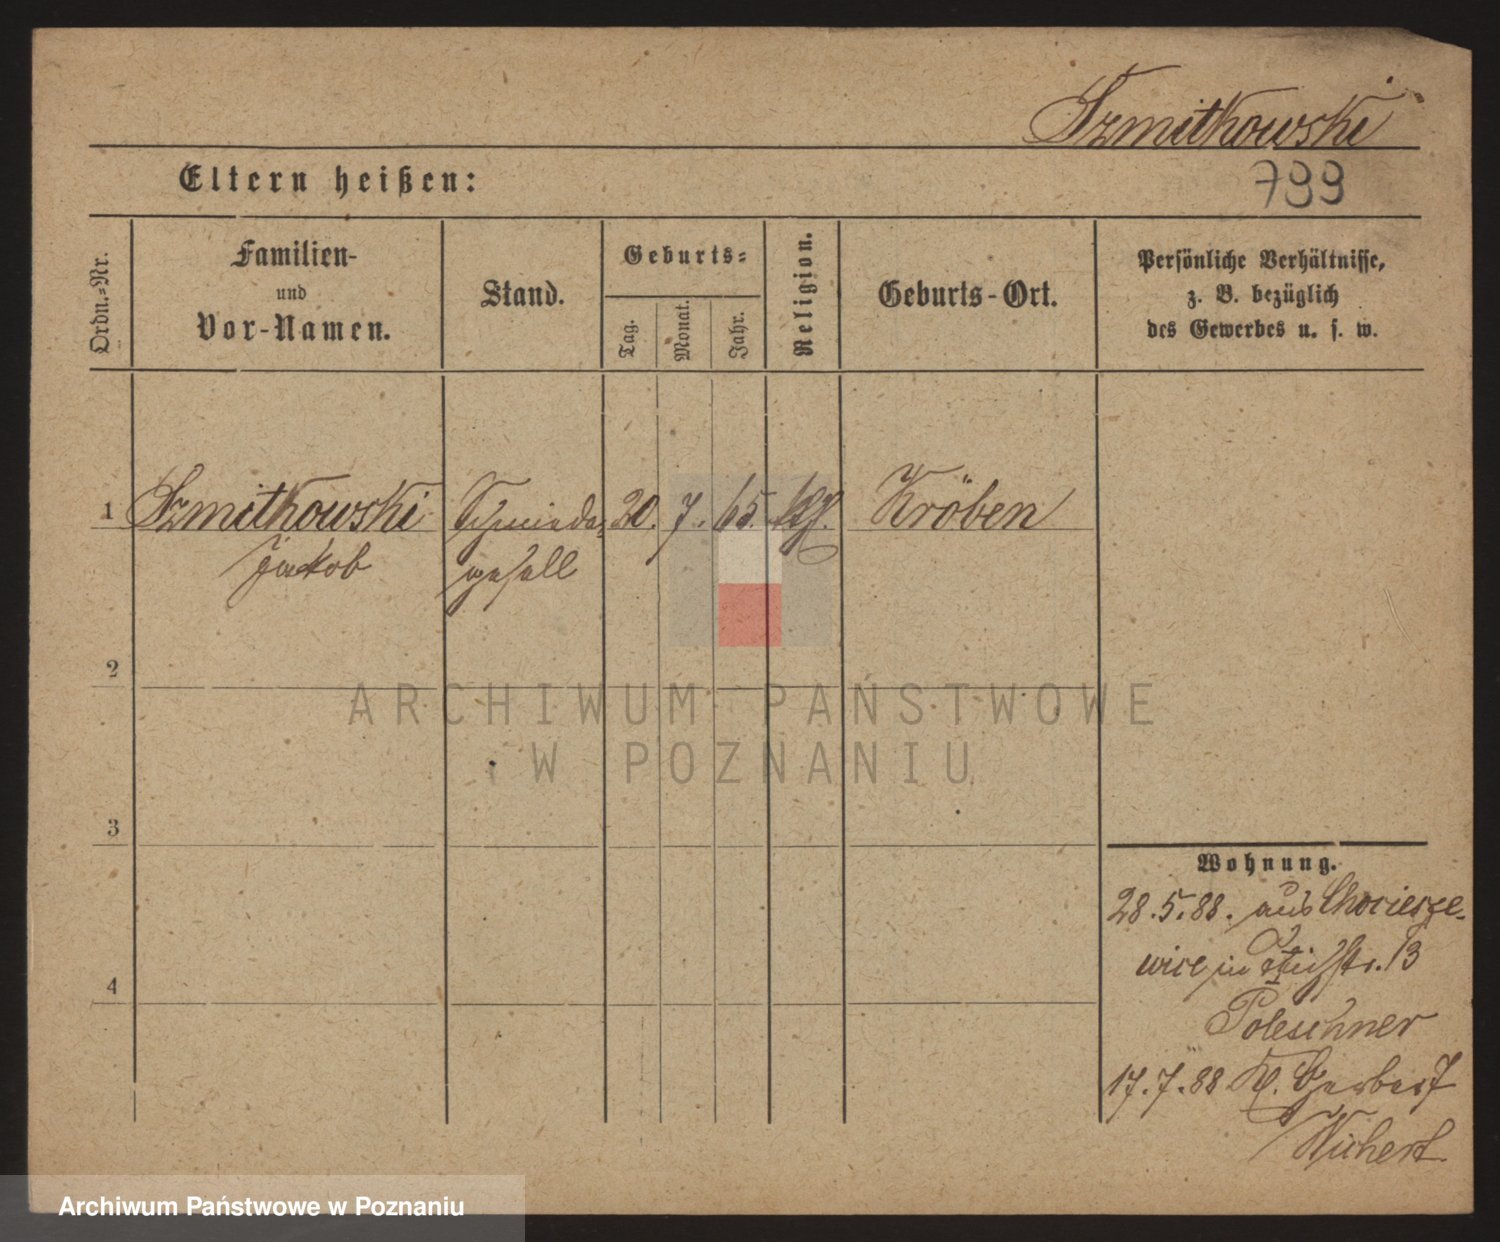 Szmitkowski
Eltern heißen:
799
Ordn.-Nr.
Familien-
und
Vor-Namen.
Stand.
Geburts-
Tag.
Monat.
Jahr.
Religion.
Geburts-Ort.
Persönliche Verhältnisse,
z. B. bezüglich
des Gewerbes u. s. w.
1 Szmitkowski Schmiede- 20. 7. 65. kth. Kröben
Jakob gesell
2
ARCHIWUM PAŃSTWOWE
W POZNANIU
3
Wohnung.
28.5.88. aus Chociesze-
wice in str. 13
4
Poleschner
17.7.88 Kl. Gerberst 7
Wichert
Archiwum Państwowe w Poznaniu